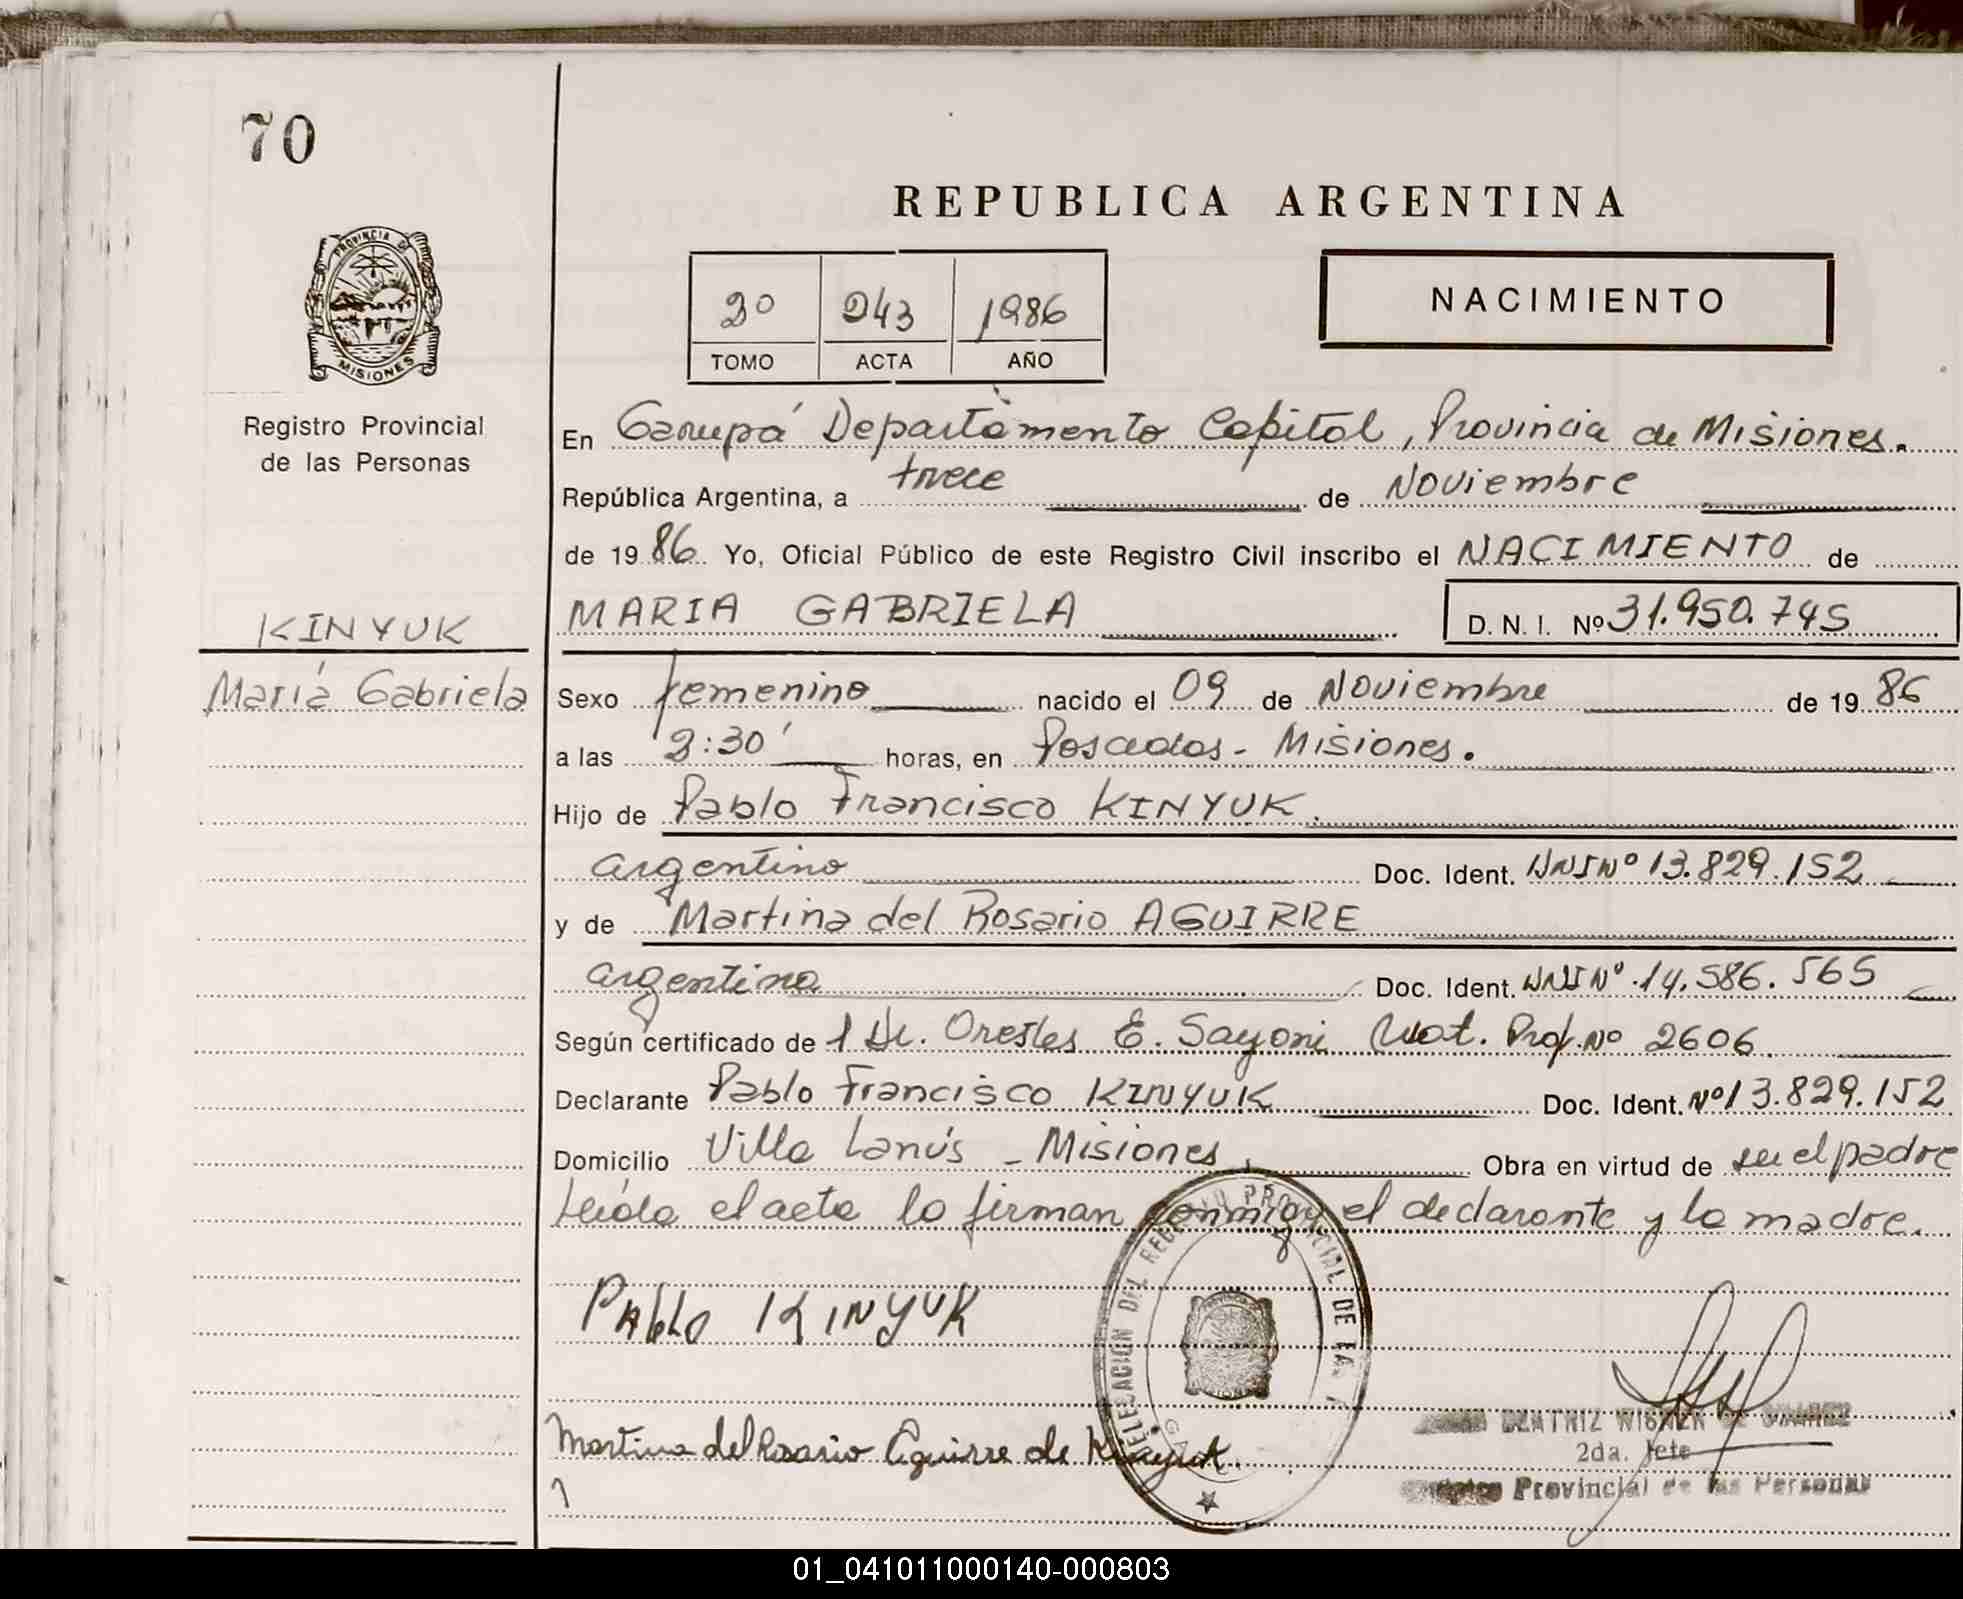 70
REPUBLICA ARGENTINA
PROVINCIA DE
MISIONES
2º 243 1986
TOMO ACTA AÑO
NACIMIENTO
Registro Provincial
de las Personas
En Garupá Departamento Capital, Provincia de Misiones.
República Argentina, a trece de Noviembre
de 1986. Yo, Oficial Público de este Registro Civil inscribo el NACIMIENTO de
MARIA GABRIELA D. N. I. Nº 31.950.745
KINYUK
María Gabriela
Sexo femenino nacido el 09 de Noviembre de 1986
a las 2:30' horas, en Posadas - Misiones.
Hijo de Pablo Francisco KINYUK.
argentino Doc. Ident. DNI Nº 13.829.152
y de Martina del Rosario AGUIRRE
argentina Doc. Ident. DNI Nº 14.586.565
Según certificado de 1 Dr. Orestes E. Sayoni Mat. Prof. Nº 2606
Declarante Pablo Francisco KINYUK Doc. Ident. Nº 13.829.152
Domicilio Villa Lanús - Misiones, Obra en virtud de ser el padre
Leída el acta la firman conmigo el declarante y la madre.
Pablo KINYUK
DELEGACION DEL REGISTRO PROVINCIAL DE LA
Martina del Rosario Aguirre de Kinyuk
BEATRIZ DE SUAREZ
2da. Jefe
Provincial de las Personas
01_041011000140-000803